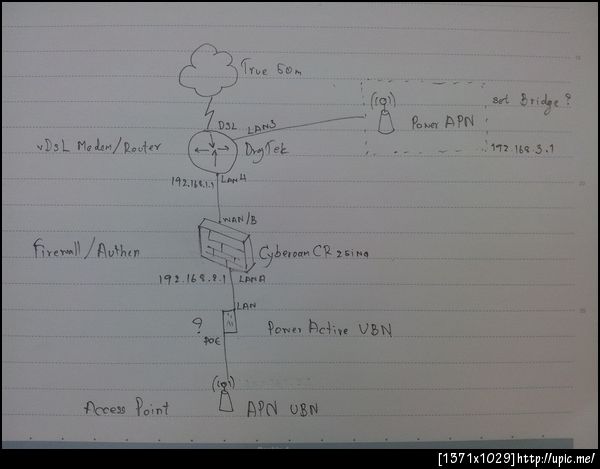 True 50m
DSL
LAN3
Power APN
set Bridge?
192.168.3.1
vDSL Modem/Router
DryTek
192.168.1.1
LAN4
WAN/B
Firewall/Authen
Cyberoam CR25ing
192.168.2.1
LANA
LAN
?
POE
Power Active UBN
Access Point
APN UBN
[1371x1029]http://upic.me/